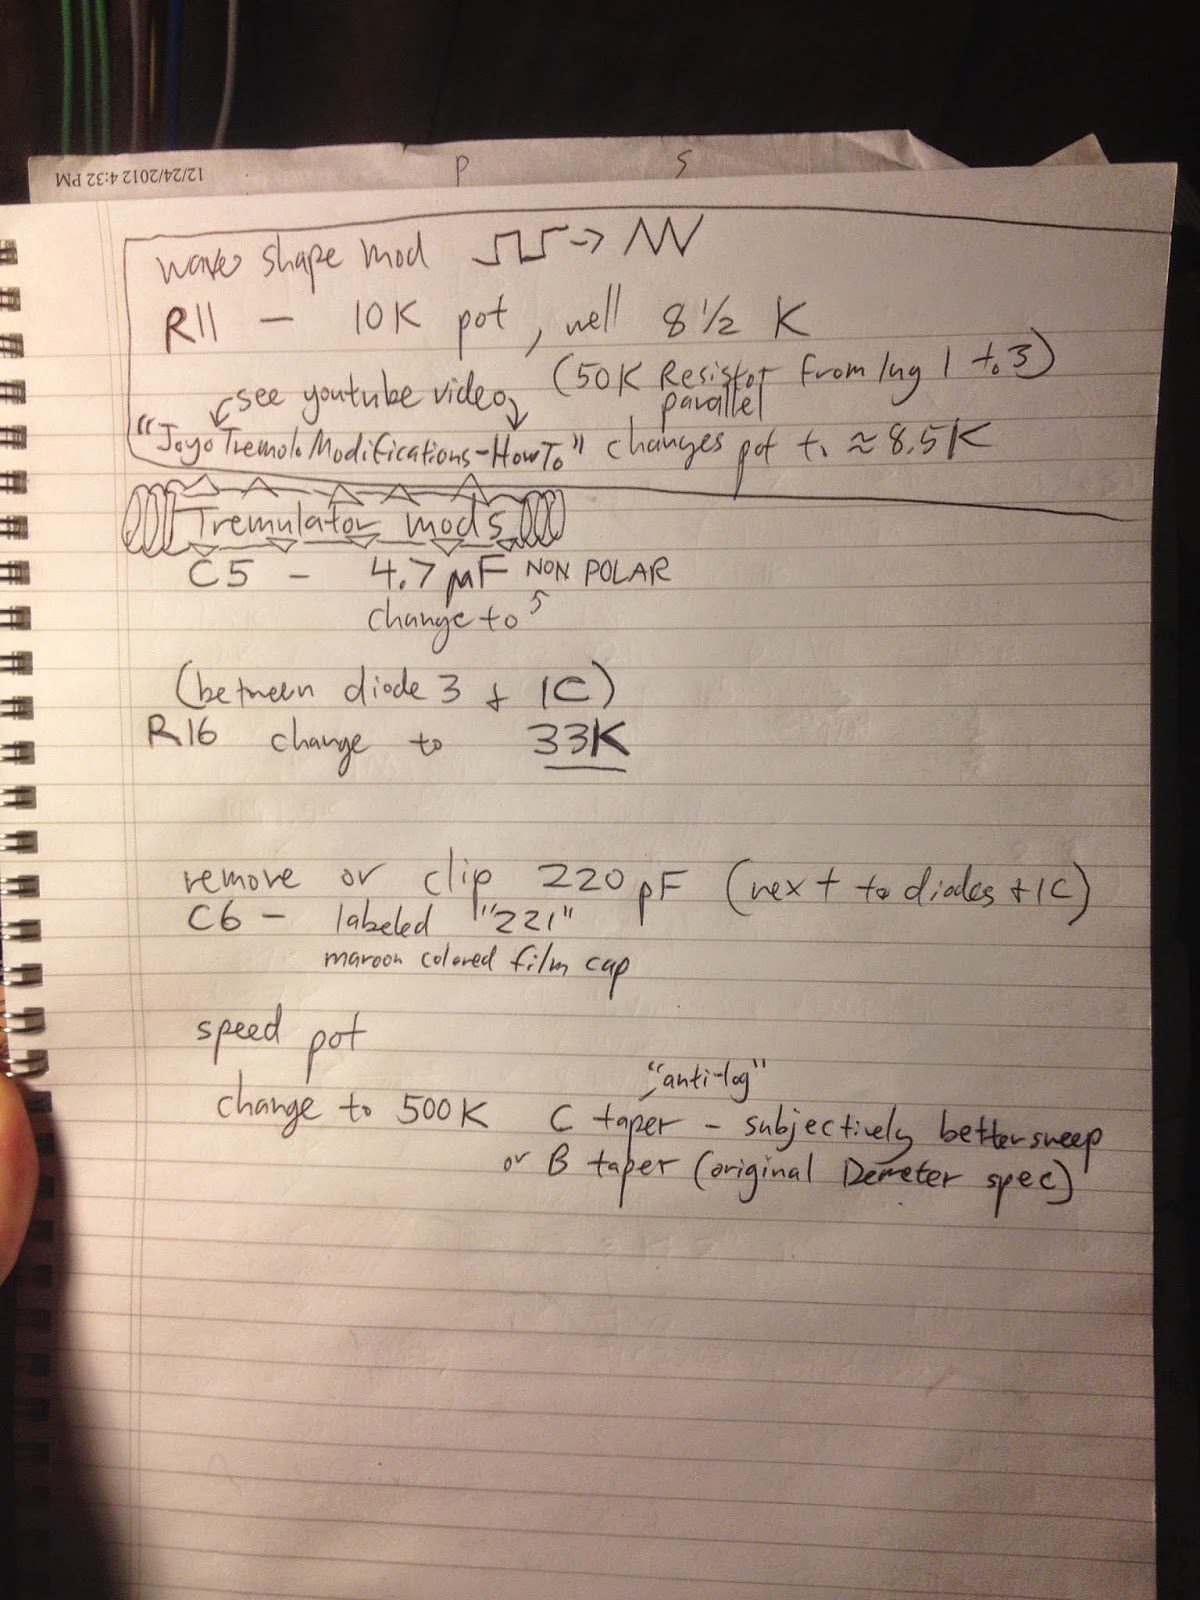 12/24/2012 4:32 PM
P S
wave shape mod
R11 - 10K pot, well 8 1/2 K
(50K Resistor from lug 1 to 3)
parallel
see youtube video
"Joyo Tremolo Modifications-How To" changes pot to ≈ 8.5K
Tremulator mods
C5 - 4.7 µF NON POLAR
change to 5
(between diode 3 & IC)
R16 change to 33K
remove or clip 220 pF (next to diodes + IC)
C6 - labeled "221"
maroon colored film cap
speed pot
"anti-log"
change to 500K C taper - subjectively better sweep
or B taper (original Demeter spec)